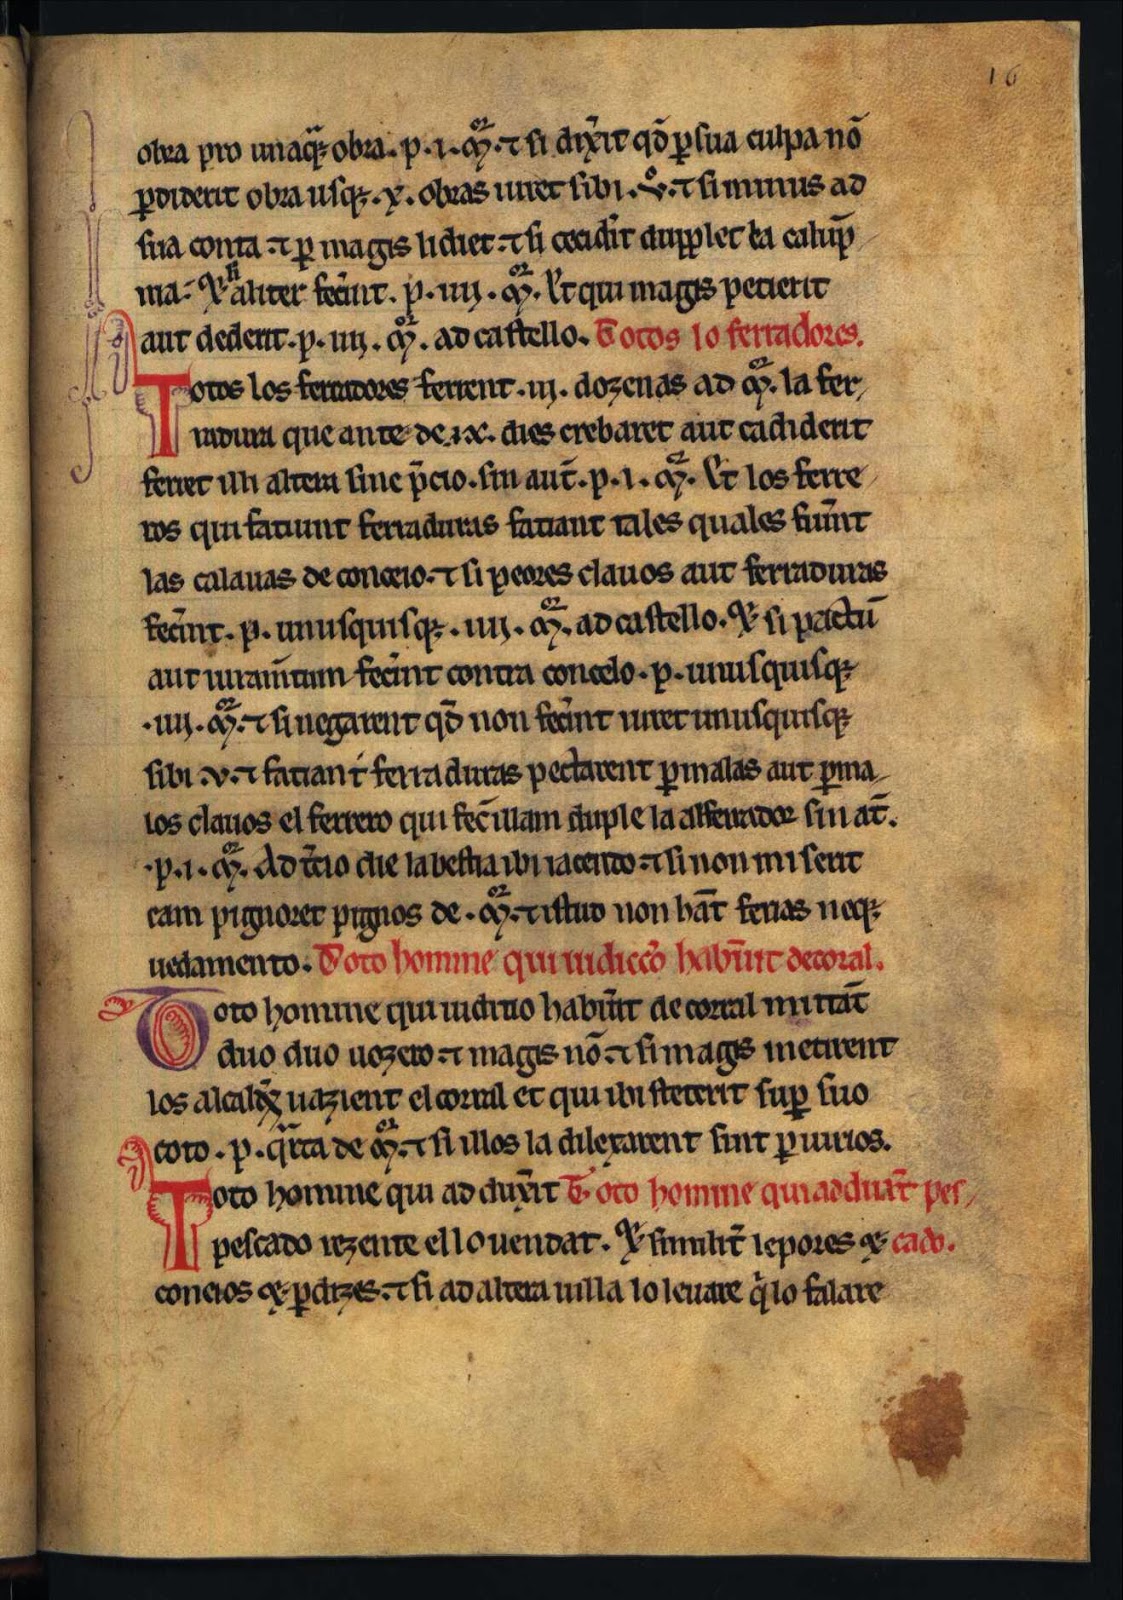 16
obra pro unaq̃q; obra. p. i. mr̃. ⁊ si dixẽit qđ ꝑ sua culpa nõ
ꝑdiderit obra usq;. x. obras iuret sibi. v̊. ⁊ si minus ad
sua conta ⁊ ꝑ magis lidiet. ⁊ si cecidẽit dupplet la calup̃
nia. Et si aliter fecĩnt. p. iiij. mr̃. Et qui magis petierit
aut dederit. p. iiij. mr̃. ad castello. Totos lo ferradores.
Totos los ferradores ferrent. iij. dozenas ad mr̃. la fer
radura que ante de. ix. dies crebaret aut cadiderit
ferret illi altera sine p̃cio. sin aut̃. p. i. mr̃. Et los ferre
ros qui fatiunt ferraduras fatiant tales quales fiuẽnt
las calauas de conceio. ⁊ si peores clauos aut ferraduras
fecĩnt. p. unusquisq;. iiij. mr̃. ad castello. Et si pactũ
aut iuram̃tum fecĩnt contra concelo. p. unusquisq;
. iiij. mr̃. ⁊ si negarent qđ non fecĩnt iuret unusquisq;
sibi. v. ⁊ fatiant ferraduras pectarent ꝑ malas aut ꝑ ma
los clauos el ferrero qui fec̃ illam duple la al ferrador sin at̃.
. p. i. mr̃. Ad t̃cio die la bestia ibi iacendo ⁊ si non miserit
eam pignoret pignos de. mr̃. ⁊ istud non hãt ferias neq;
uedamento. Toto homine qui iudicc̃o habũint de corral.
Toto homine qui iuditio habũint de corral mittãt
duo duo uozero ⁊ magis nõ. ⁊ si magis metirent
los alcaldes uazient el corral et qui ibi steterit suꝑ suo
coto. p. qͣrta de mr̃. ⁊ si illos la dilexarent sint ꝑiurios.
Toto homine qui ad duxẽit Toto homine qui ad duxit̃ pes
pescado rezente el lo uendat. Et similit̃ lepores et cado.
coneios et ꝑdizes. ⁊ si ad altera uilla lo leuare q̃ lo falare